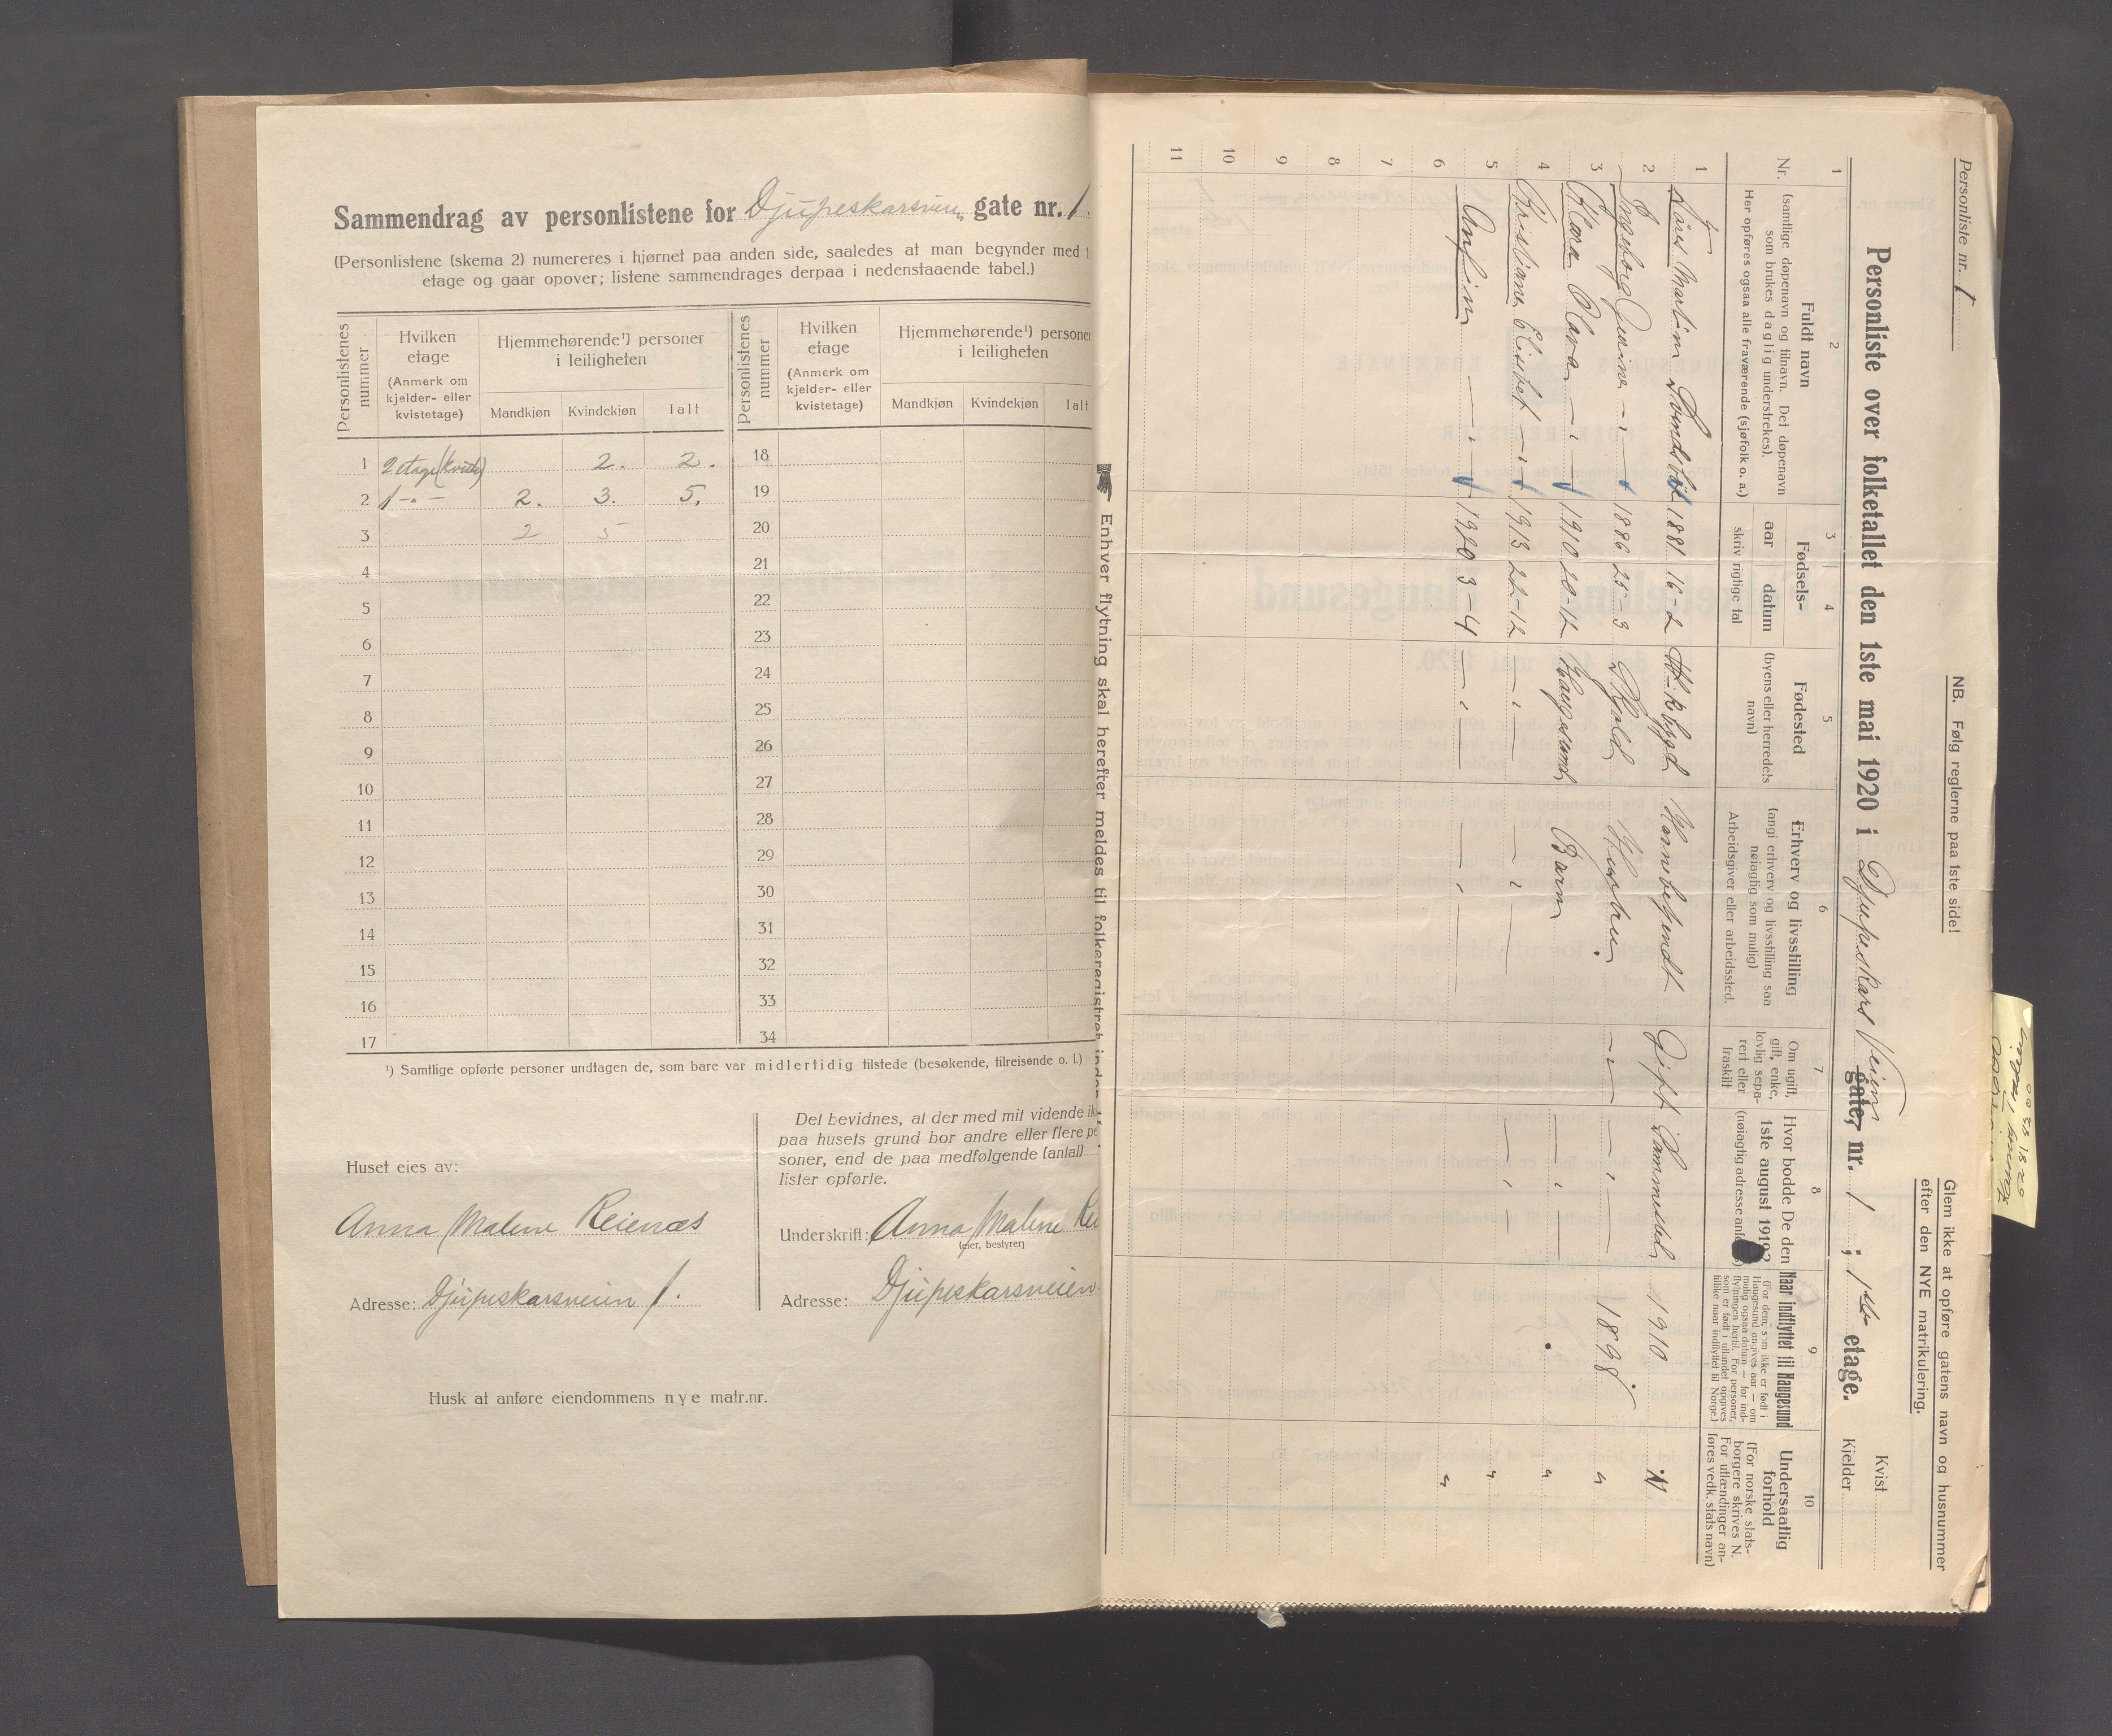 Sammendrag av personlistene for Djupeskarsveien gate nr. 1.
(Personlistene (skema 2) numereres i hjørnet paa anden side, saaledes at man begynder med 1
etage og gaar opover; listene sammendrages derpaa i nedenstaaende tabel.)
Personlistenes nummer
Hvilken etage (Anmerk om kjelder- eller kvistetage)
Hjemmehørende¹) personer i leiligheten
Mandkjøn Kvindekjøn Ialt
Personlistenes nummer
Hvilken etage (Anmerk om kjelder- eller kvistetage)
Hjemmehørende¹) personer i leiligheten
Mandkjøn Kvindekjøn Ialt
1 2 etage (kvist) 2. 2. 18
2 1 -„- 2. 3. 5. 19
3 2 5 20
4 21
5 22
6 23
7 24
8 25
9 26
10 27
11 28
12 29
13 30
14 31
15 32
16 33
17 34
¹) Samtlige opførte personer undtagen de, som bare var midlertidig tilstede (besøkende, tilreisende o. l.)
Huset eies av:
Anna Malene Reienæs
Adresse: Djupeskarsveien 1.
Det bevidnes, at der med mit vidende ik
paa husets grund bor andre eller flere pe
soner, end de paa medfølgende (antal)
lister opførte.
Underskrift: Anna Malene Rei
(eier, bestyrer)
Adresse: Djupeskarsveien
Husk at anføre eiendommens nye matr.nr.
Personliste nr. 1
NB. Følg reglerne paa 1ste side!
Glem ikke at opføre gatens navn og husnummer
efter den NYE matrikulering.
Personliste over folketallet den 1ste mai 1920 i Djupeskars Veien gate, nr. 1 ; 1ste etage.
Kvist
Kjelder
1 2 3 4 5 6 7 8 9 10
Nr.
Fuldt navn
(samtlige døpenavn og tilnavn. Det døpenavn
som brukes daglig understrekes).
Her opføres ogsaa alle fraværende (sjøfolk o. a.)
Fødsels-
aar datum
skriv rigtige tal
Fødested
(byens eller herredets
navn)
Erhverv og livsstilling
(angi erhverv og livsstilling saa
nøiagtig som mulig)
Arbeidsgiver eller arbeidssted.
Om ugift,
gift, enke,
lovlig sepa-
rert eller
fraskilt
Hvor bodde De den
1ste august 1919?
(nøiagtig adresse anf
Naar indflyttet til Haugesund
(For dem, som ikke er født i
Haugesund angives aar — om
mulig ogsaa datum — for ind-
flytningen hertil. For personer,
som er født i utlandet opgives
tillike naar indflyttet til Norge.)
Undersaatlig
forhold
(For norske stats-
borgere skrives N.
For utlændinger an-
føres vedk. stats navn)
1 Martin 1881 16-2 Gift Sammested 1910 N
2 Ingeborg - „ - 1886 25-3 Skjold Husfru. - „ - - „ - 1898 "
3 Klara Olava - „ - 1910 20-12 Haugesund Barn - „ - "
4 Kristiane Elisabet - „ - 1913 22-12 - „ - - „ - - „ - "
5 Anfin - „ - 1920 3-4 - „ - - „ - "
6
7
8
9
10
11
Enhver flytning skal herefter meldes til folkeregistret inden